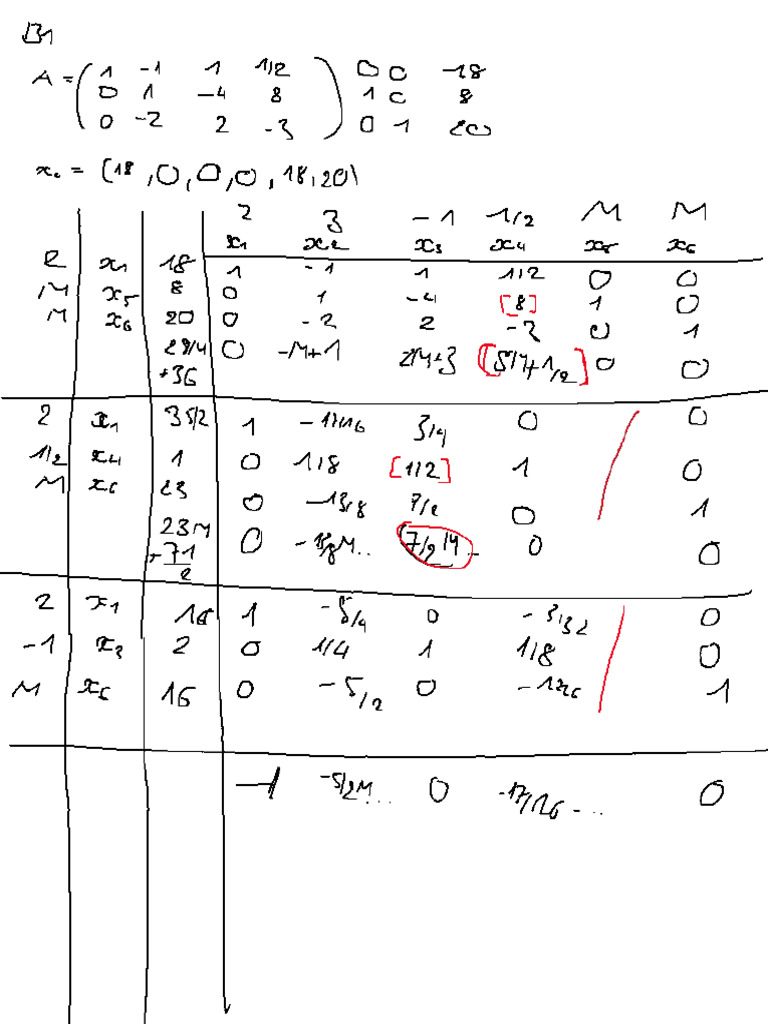 B1
A = ( 1 -1 1 1/2 ) 0 0 18
0 1 -4 8 1 0 8
0 -2 2 -3 0 1 20
x₀ = (18, 0, 0, 0, 18, 20)
2 3 -1 1/2 M M
x1 x2 x3 x4 x5 x6
2 x1 18 1 -1 1 1/2 0 0
M x5 8 0 1 -4 [8] 1 0
M x6 20 0 -2 2 -3 0 1
28M 0 -M+1 2M+3 [5M+1/2] 0 0
+36
2 x1 35/2 1 -17/16 3/4 0 0
1/2 x4 1 0 1/8 [1/2] 1 0
M x6 23 0 -13/8 7/2 0 1
23M 0 -13/8M.. 7/2M.. 0 0
+71
2
2 x1 16 1 -5/4 0 -3/32 0
-1 x3 2 0 1/4 1 1/8 0
M x6 16 0 -5/2 0 1
-5/2M... 0 -17/16 -... 0